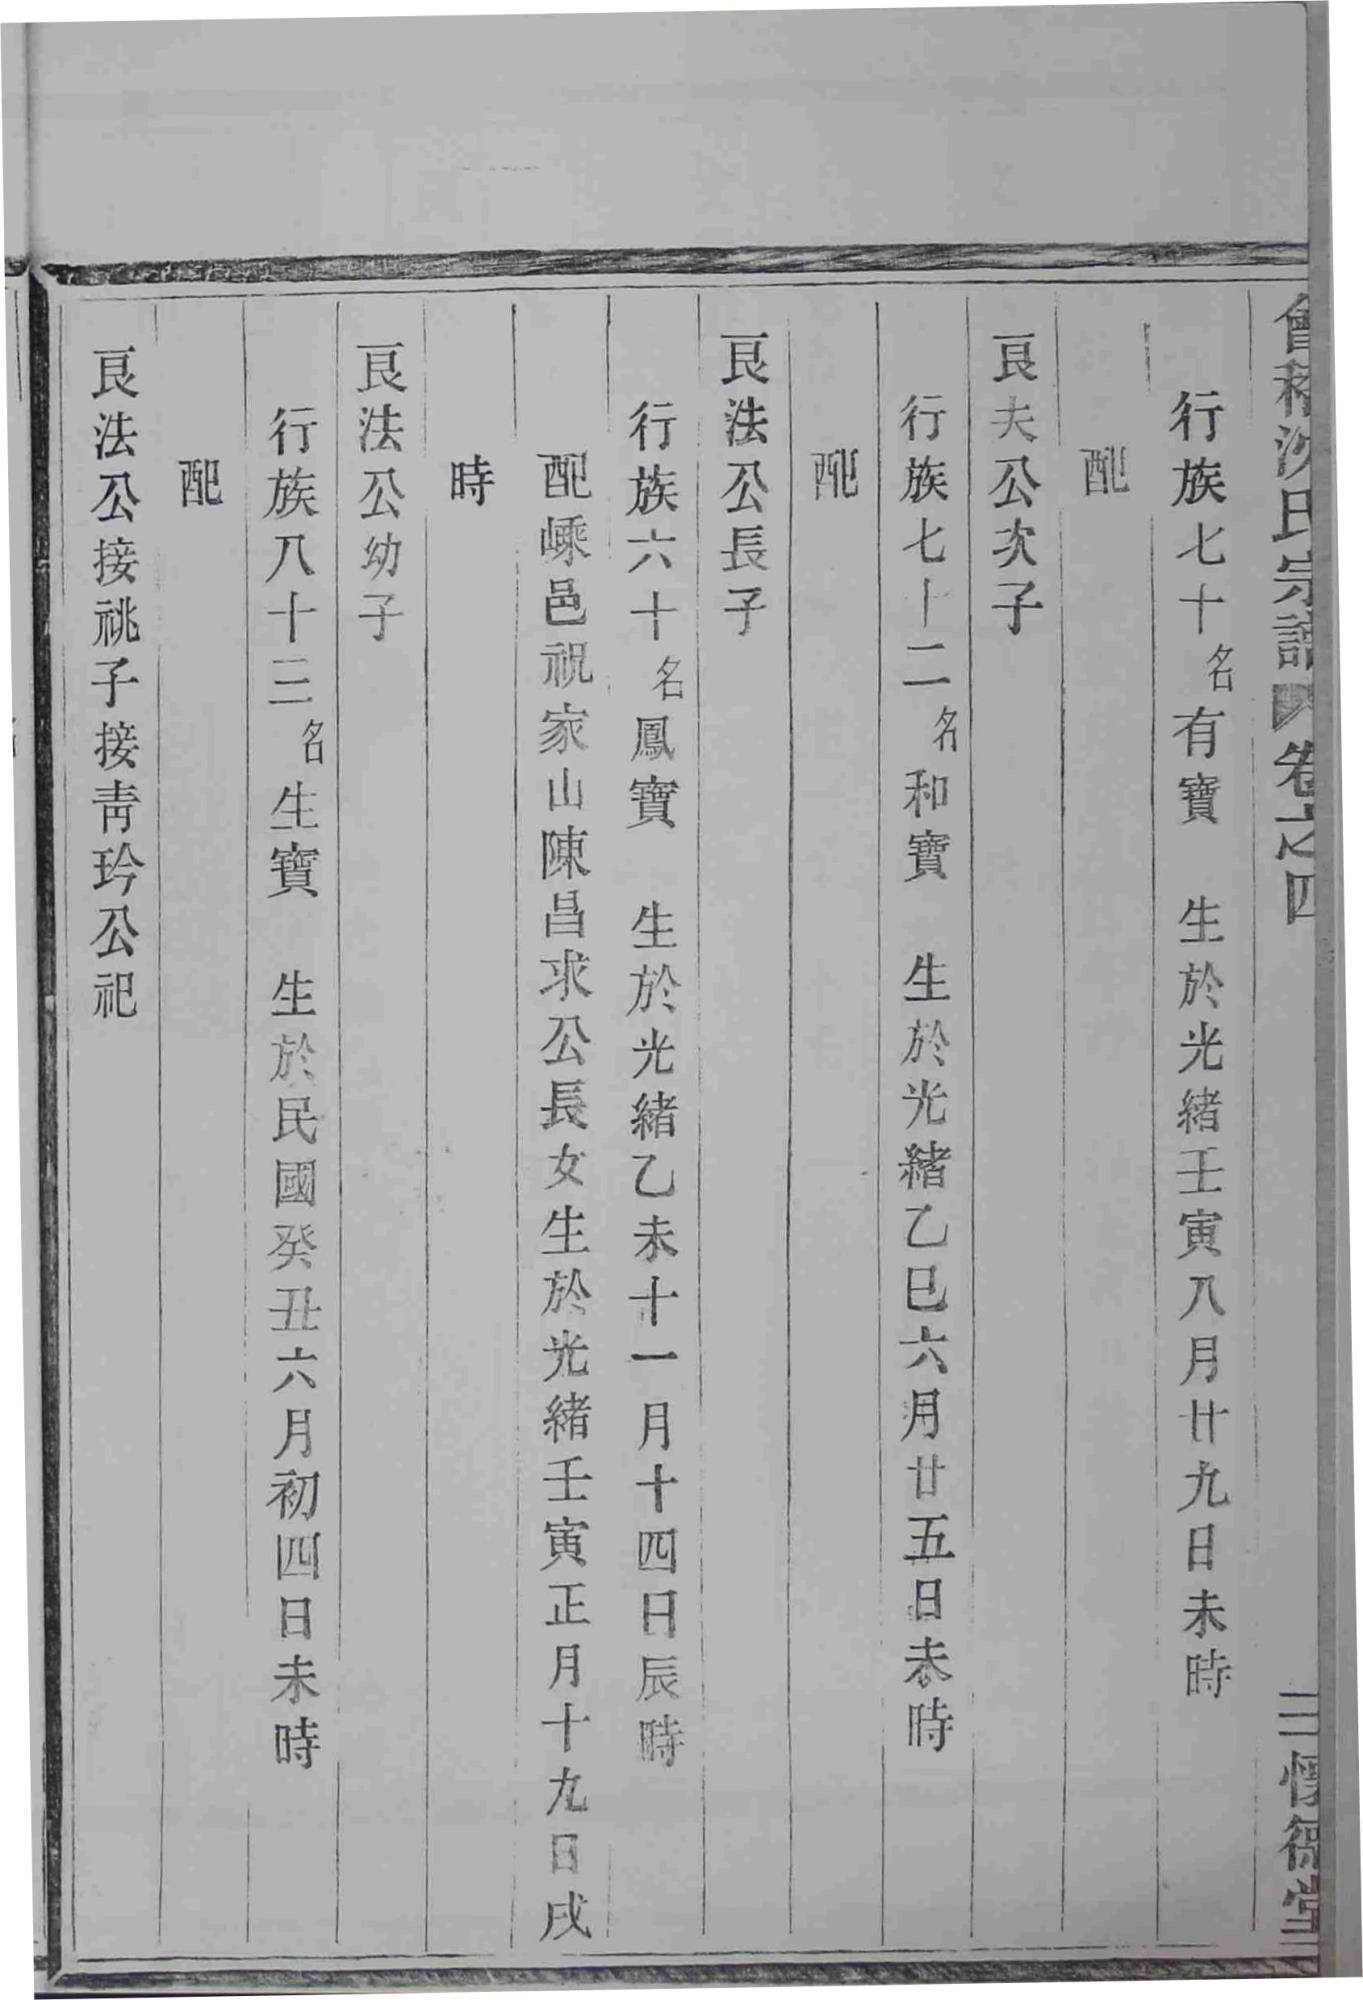 會稽沈氏宗譜 卷之四 三 懷德堂
行族七十名有寶 生於光緒壬寅八月廿九日未時
配
艮夫公次子
行族七十二名和寶 生於光緒乙巳六月廿五日未時
配
艮法公長子
行族六十名鳳寶 生於光緒乙未十一月十四日辰時
配嵊邑祝家山陳昌求公長女生於光緒壬寅正月十九日戌
時
艮法公幼子
行族八十三名生寶 生於民國癸丑六月初四日未時
配
艮法公接祧子接靑玪公祀